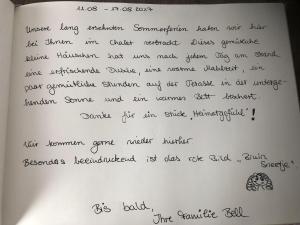 11.08 - 17.08.2017
Unsere lang ersehnten Sommerferien haben wir hier
bei Ihnen im Chalet verbracht. Dieses gemütliche
kleine Häuschen hat uns nach jedem Tag am Strand
eine erfrischende Dusche, eine warme Mahlzeit, ein
paar gemütliche Stunden auf der Terasse in der unterge-
henden Sonne und ein warmes Bett beschert.
Danke für ein Stück „Heimatgefühl"!
Wir kommen gerne wieder hierher.
Besonders beeindruckend ist das rote Bild „Bruin
Sneetje"
Bis bald,
Ihre Familie Bell